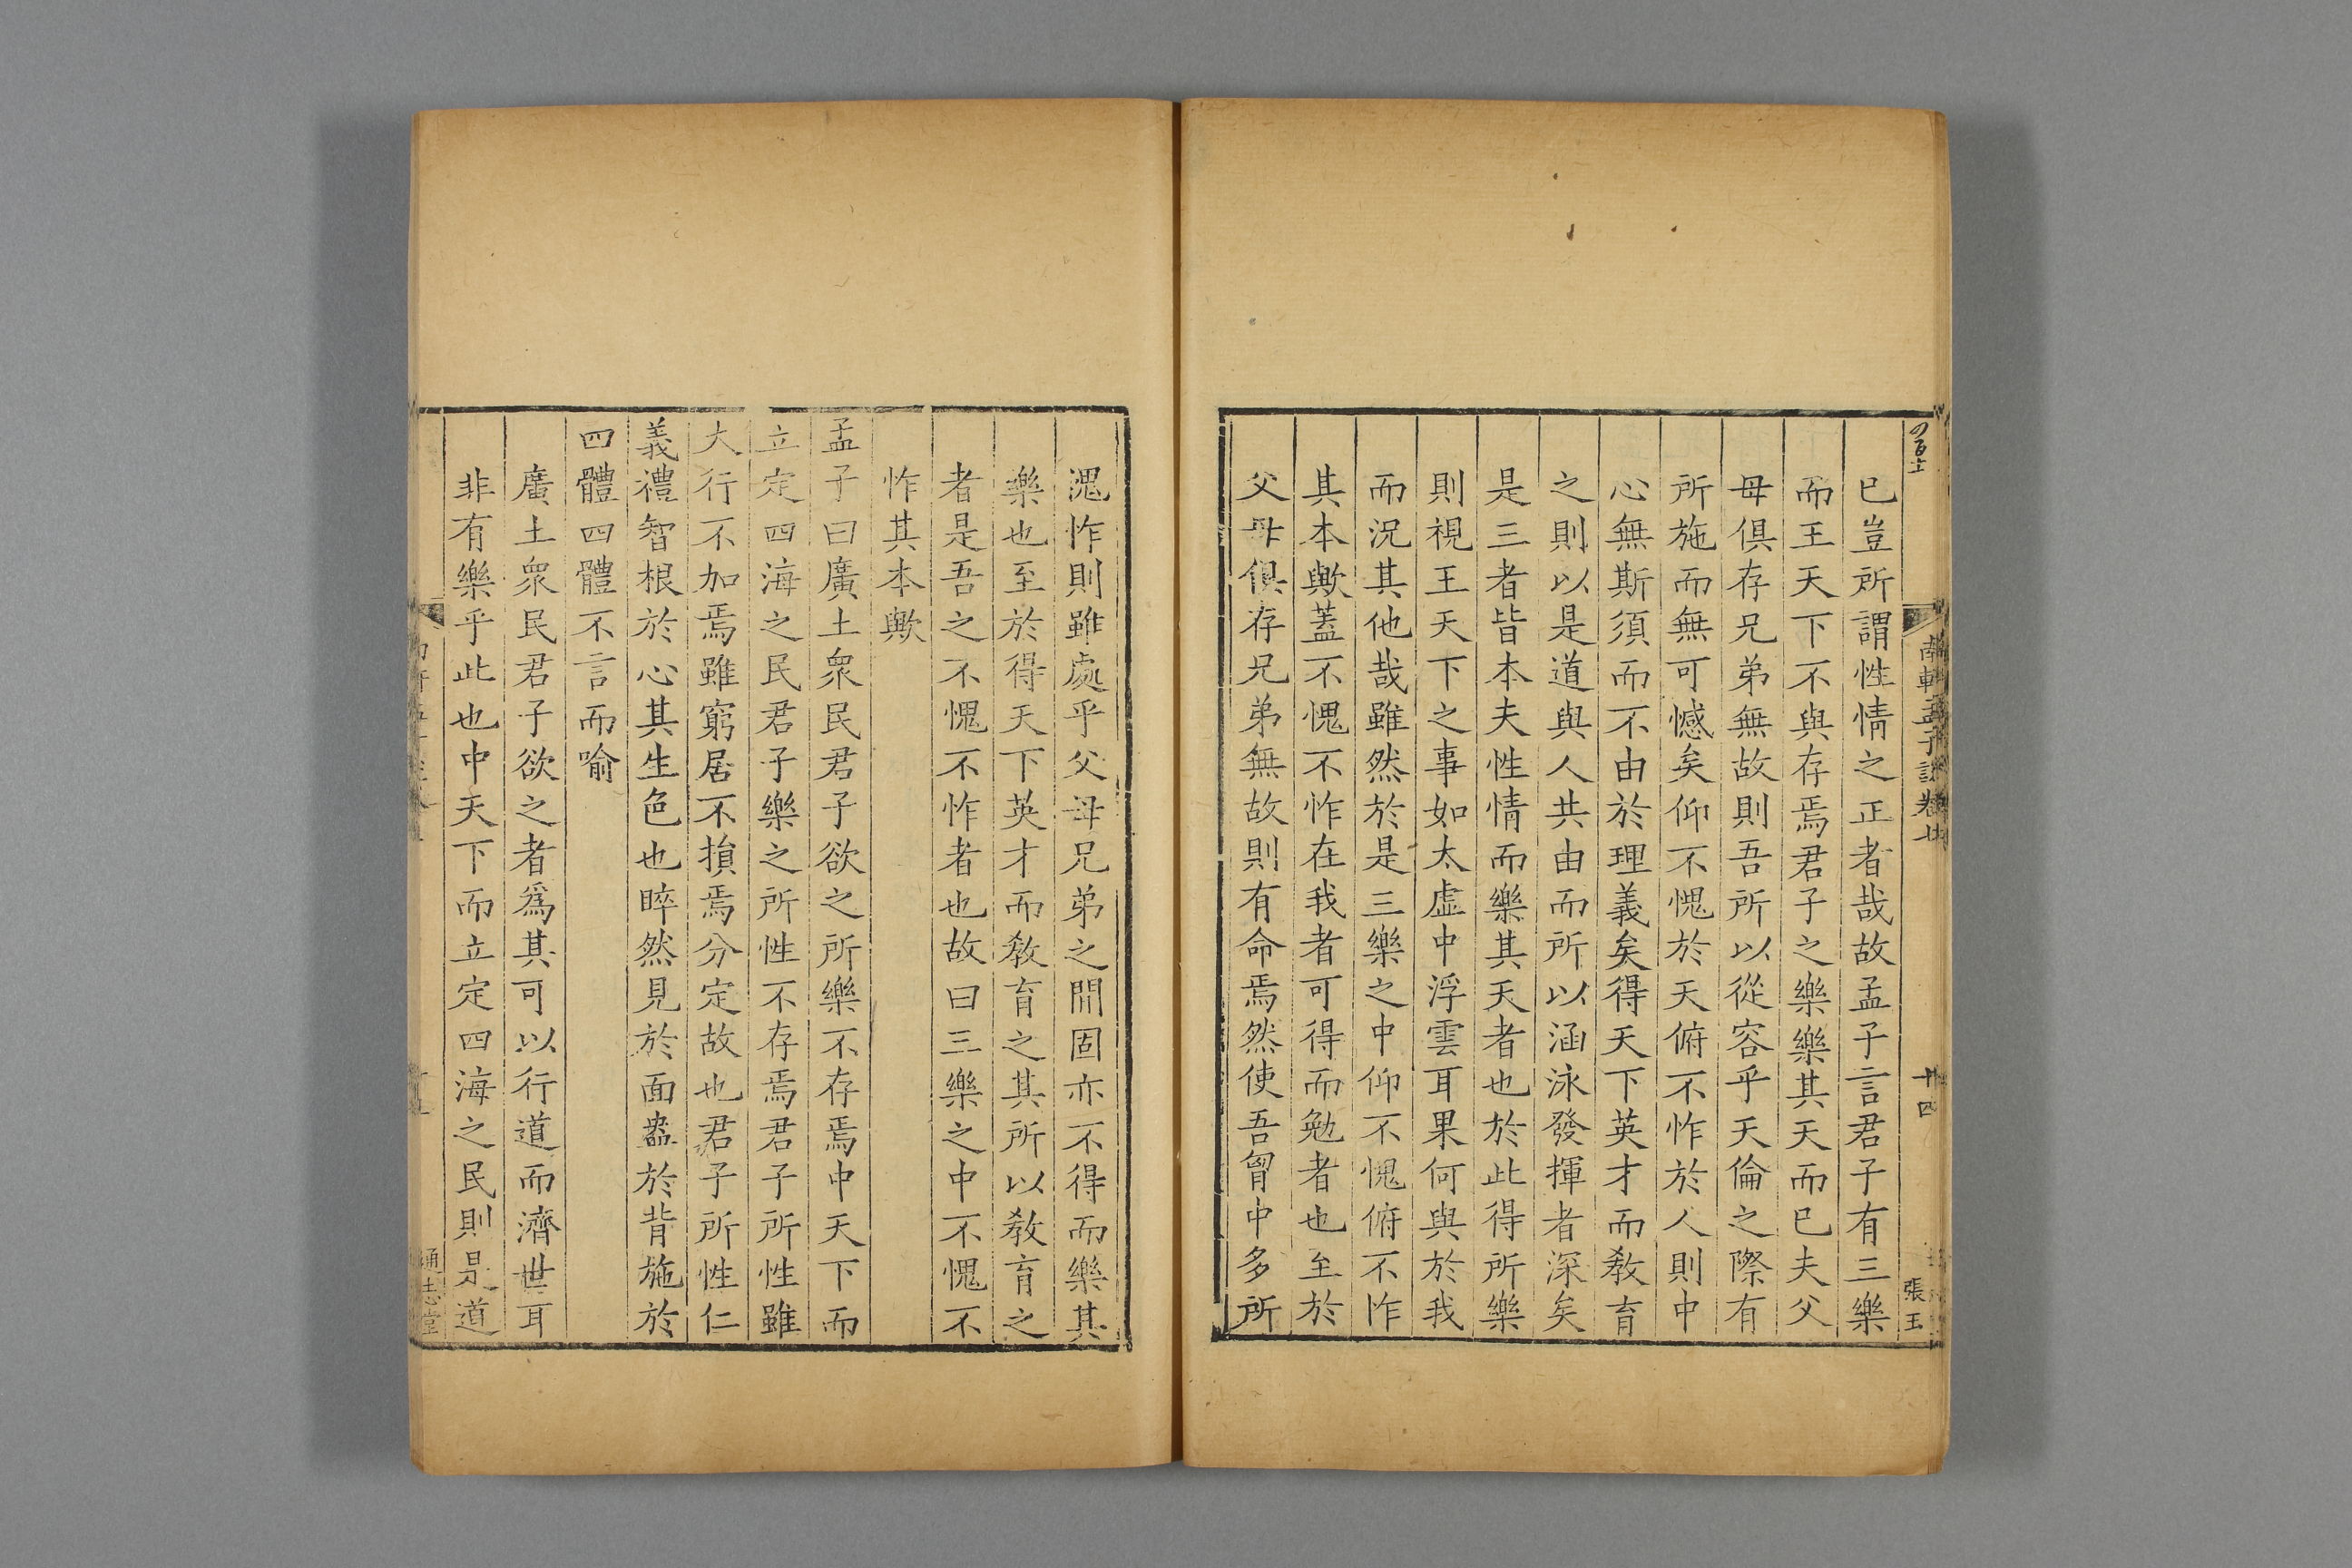 已豈所謂性情之正者哉故孟子言君子有三樂
而王天下不與存焉君子之樂樂其天而已夫父
母俱存兄弟無故則吾所以從容乎天倫之際有
所施而無可憾矣仰不愧於天俯不怍於人則中
心無斯須而不由於理義矣得天下英才而敎育
之則以是道與人共由而所以涵泳發揮者深矣
是三者皆本夫性情而樂其天者也於此得所樂
則視王天下之事如太虛中浮雲耳果何與於我
而況其他哉雖然於是三樂之中仰不愧俯不怍
其本歟蓋不愧不怍在我者可得而勉者也至於
父母俱存兄弟無故則有命焉然使吾胷中多所
愧怍則雖處乎父母兄弟之間固亦不得而樂其
樂也至於得天下英才而敎育之其所以敎育之
者是吾之不愧不怍者也故曰三樂之中不愧不
怍其本歟
孟子曰廣土衆民君子欲之所樂不存焉中天下而
立定四海之民君子樂之所性不存焉君子所性雖
大行不加焉雖窮居不損焉分定故也君子所性仁
義禮智根於心其生色也睟然見於面盎於背施於
四體四體不言而喻
廣土衆民君子欲之者爲其可以行道而濟世耳
非有樂乎此也中天下而立定四海之民則是道
南軒孟子說卷七
十四
張玉
通志堂